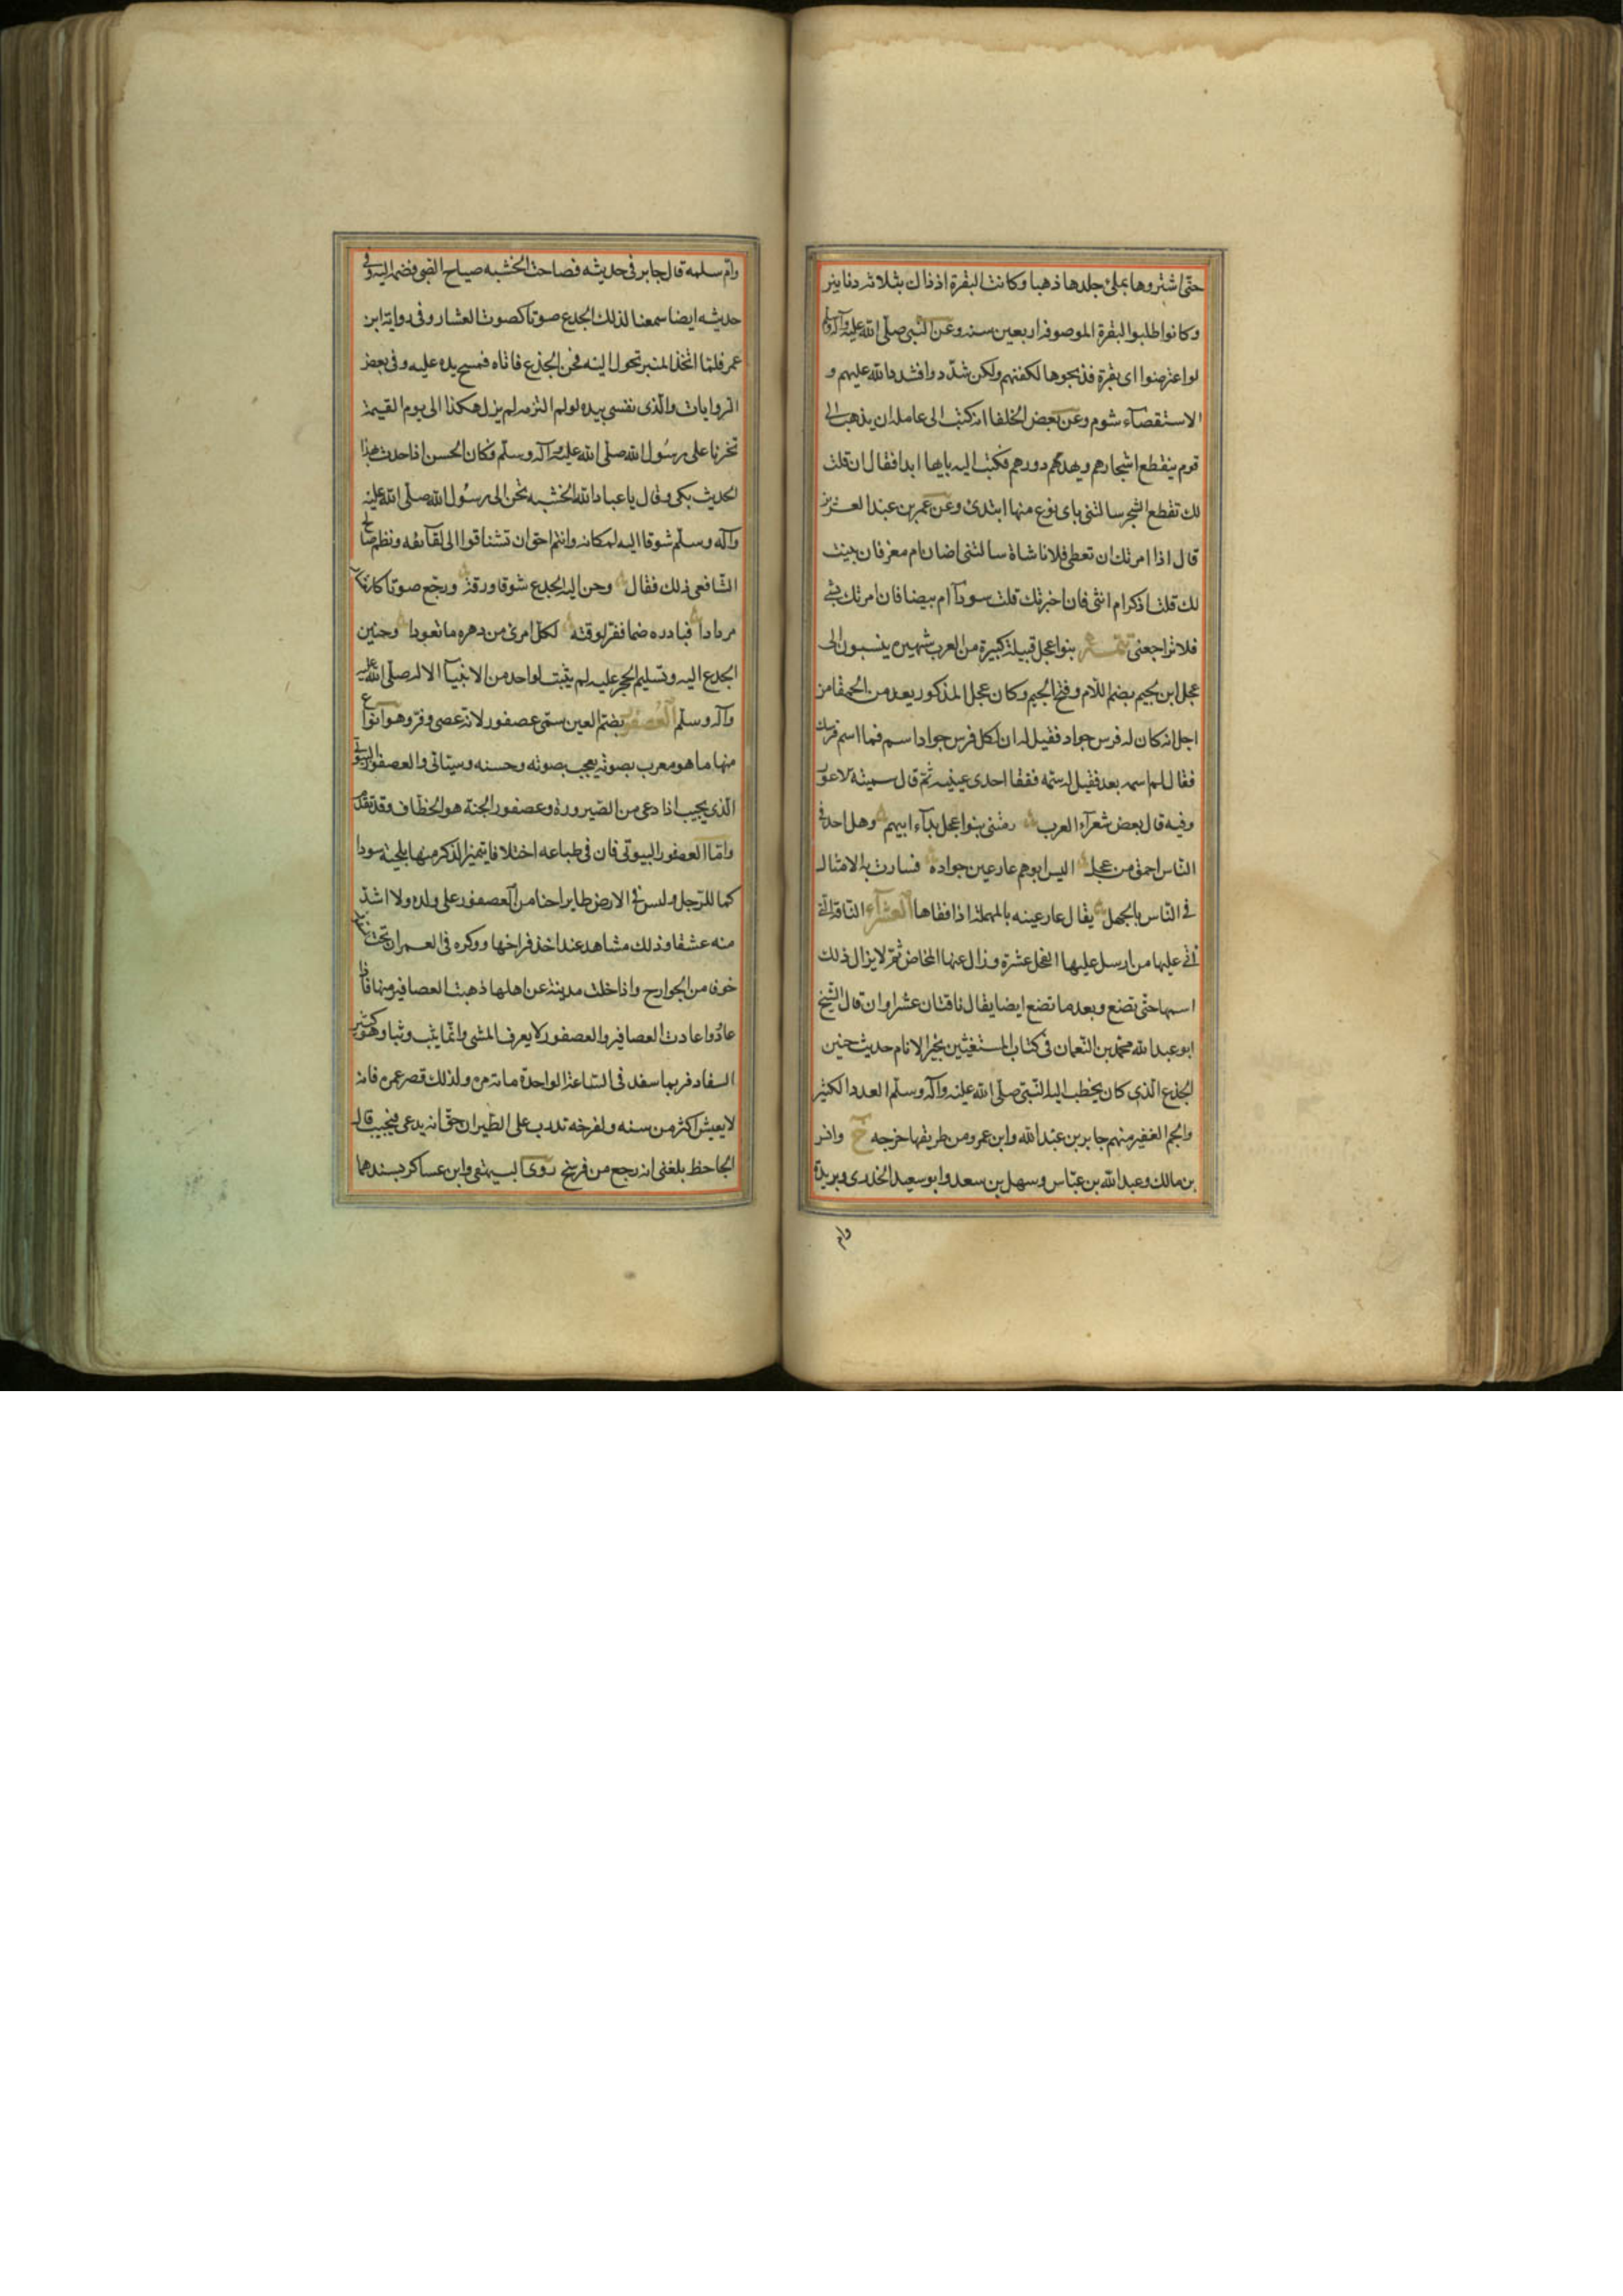 حتى اشتروها بملئ جلدها ذهبا وكانت البقرة اذ ذاك بثلاثة دنانير
وكانوا طلبوا البقرة الموصوفة اربعين سنه وعن النبى صلى الله عليه وآله وسلم
لو اعترضوا اى بقرة فذبحوها لكفتهم ولكن شددوا فشدد الله عليهم و
الاستقصآء شوم وعن بعض الخلفا انه كتب الى عامله ان يذهب الى
قوم يقطع اشجارهم ويهدم دورهم فكتب اليه بايها ابدا فقال ان قلت
لك تقطع الشجر سالتنى باى نوع منها ابتدئ وعن عمر بن عبد العزيز
قال اذا امرتك ان تعطى فلانا شاة سالتنى اضان ام معز فان بينت
لك قلت اذكر ام انثى فان اخبرتك قلت سودآ ام بيضا فان امرتك بشئ
فلا تراجعنى تتمـــــة بنوا عجل قبيلة كبيرة من العرب شهيره ينسبون الى
عجل ابن لجيم بضم اللام وفتح الجيم وكان عجل المذكور يعد من الحمقا من
اجل انه كان له فرس جواد فقيل له ان لكل فرس جواد اسم فما اسم فرسك
فقال لم اسمه بعد فقيل له سمه ففقا احدى عينيه ثم قال سميته الاعور
وفيه قال بعض شعرآء العرب رمتنى بنوا عجل بدآء ابيهم وهل احد فى
الناس احمق من عجل اليس ابوهم عار عين جواده فسارت به الامثال
فى الناس بالجهل يقال عار عينه بالمهملة اذا فقاها العشرآء الناقة التى
اتى عليها من ارسل عليها الفحل عشرة وزال عنها المخاض ثم لا يزال ذلك
اسمها حتى تضع وبعد ما تضع ايضا يقال ناقتان عشراوان قال الشيخ
ابو عبد الله محمد بن النعمان فى كتاب المستغيثين بخير الانام حديث حنين
الجذع الذى كان يخطب اليه النبى صلى الله عليه وآله وسلم العدد الكثير
والجم الغفير منهم جابر بن عبد الله وابن عمر ومن طريقها خرجه خ وانس
بن مالك وعبد الله بن عباس وسهل بن سعد وابو سعيد الخدرى وبريدة
وام
وام سلمه قال جابر فى حديثه فصاحت الخشبه صياح الصبى فضمها اليه وفى
حديثه ايضا سمعنا لذلك الجدع صوتا كصوت العشار وفى رواية ابن
عمر فلما اتخذ المنبر تحول اليه فحن الجذع فاتاه فمسح يده عليه وفى بعض
الروايات والذى نفسى بيده لو لم التزمه لم يزل هكذا الى يوم القيمة
تحزنا على رسول الله صلى الله عليه وآله وسلم وكان الحسن اذا حدث بهذا
الحديث بكى وقال يا عباد الله الخشبه تحن الى رسول الله صلى الله عليه
وآله وسلم شوقا اليه لمكانه وانتم احق ان تشتاقوا الى لقآئه ونظم صالح
الشافعى ذلك فقال وحن اليه الجدع شوقا ورقة ورجع صوتا كالعشار
مرددا فبادره ضما فقر لوقته لكل امرئ من دهره ما تعودا وحنين
الجدع اليه وتسليم الحجر عليه لم يثبت لواحد من الانبيآ الا له صلى الله عليه
وآله وسلم العصفور بضم العين سمى عصفور لانه عصى وفر وهو انواع
منها ما هو معرب بصوته يعجب بصوته وحسنه وسياتى والعصفور
الذى يجيب اذا دعى من الصيرورة وعصفور الجنة هو الخطاف وقد تقدم
واما العصفور البيوتى فان فى طباعه اختلافا يتميز الذكر منها بلحية سودا
كما للرجل وليس فى الارض طاير احنا من العصفور على ولده ولا اشد
منه عشقا وذلك مشاهد عند اخذ فراخها ووكره فى العمران تحت
خوفا من الجوارح واذا خلت مدينة عن اهلها ذهبت العصافير منها فاذا
عادوا عادت العصافير والعصفور لا يعرف المشى وانما يثب وثبا وهو كثير
السفاد فربما سفد فى الساعة الواحدة ماية مره ولذلك قصر عمره فانه
لا يعيش اكثر من سنه ولفرخه تدرب على الطيران حتى انه يدعى فيجيب قال
الجاحظ بلغنى انه رجع من فرسخ روى البيهقى وابن عساكر بسندهما